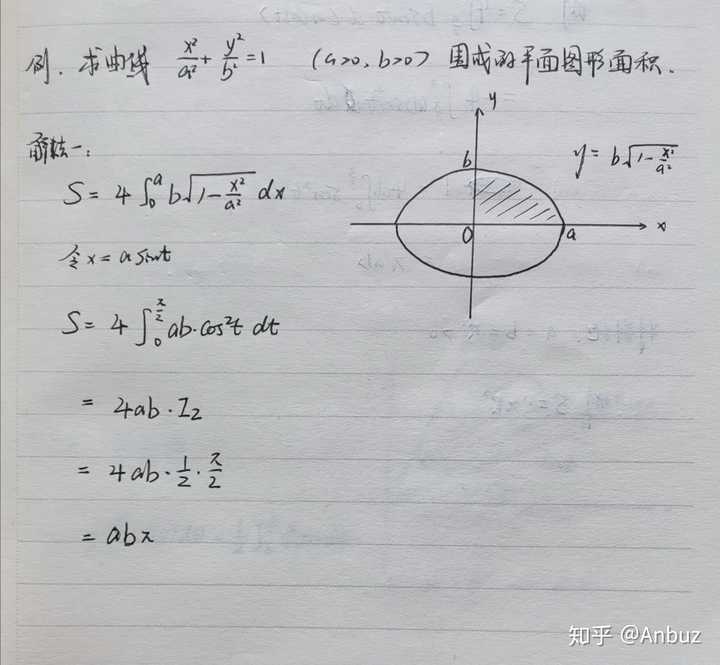 例. 求曲线 x²/a² + y²/b² = 1 (a>0, b>0) 围成的平面图形面积.
解法一:
S = 4∫₀ᵃ b√(1-x²/a²) dx
令 x = a sint
S = 4∫₀^(π/2) ab·cos²t dt
= 4ab·I₂
= 4ab·1/2·π/2
= abπ
y
b
y = b√(1-x²/a²)
O
a
x
知乎 @Anbuz